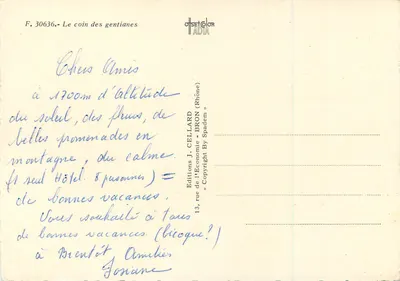 F. 30636.- Le coin des gentianes
Chers Amis
à 1700m d'Altitude
du soleil, des fleurs, de
belles promenades en
montagne, du calme
(1 seul Hôtel 8 personnes) =
de bonnes vacances.
Vous souhaite à tous
de bonnes vacances (bicoque?)
à Bientôt Amitiés
Josiane
Editions J. CELLARD
13, rue de l'Economie - BRON (Rhône)
- Copyright By Spadem -
ADIA